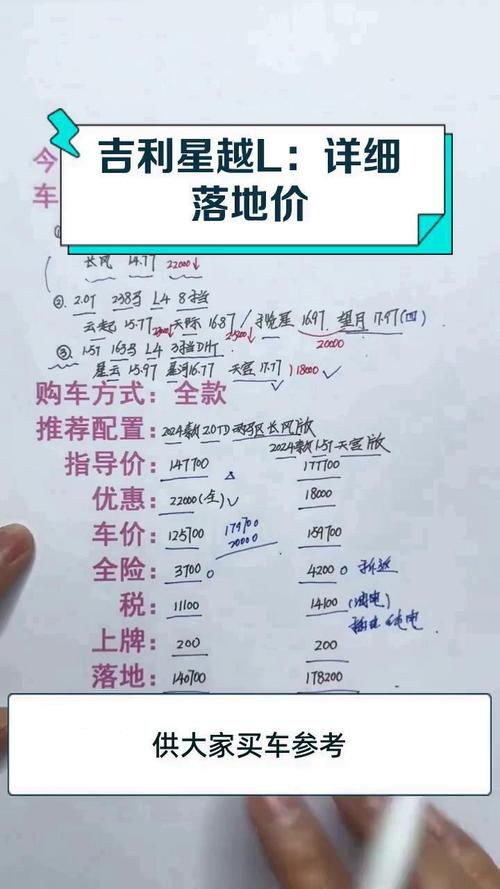 今
吉利星越L：详细
落地价
车
长风 14.77 22000↓
②. 2.0T 238马 L4 8挡
云起 15.77 天际 16.87 / 揽星 16.97 望月 17.97 (四)
25200↓ 20000
③ 1.5T 163马 L4 3挡DHT
星云 15.97 星河 16.77 天宫 17.77 18000
购车方式：全款
推荐配置：2024款2.0TD两驱长风版
2024款1.5T天宫版
指导价：147700 177700
优惠：22000(全) 18000
车价：125700 179700 159700
20000
全险：3700 4200
税：11100 14100
纯电
上牌：200 200
落地：140700 178200
供大家买车参考